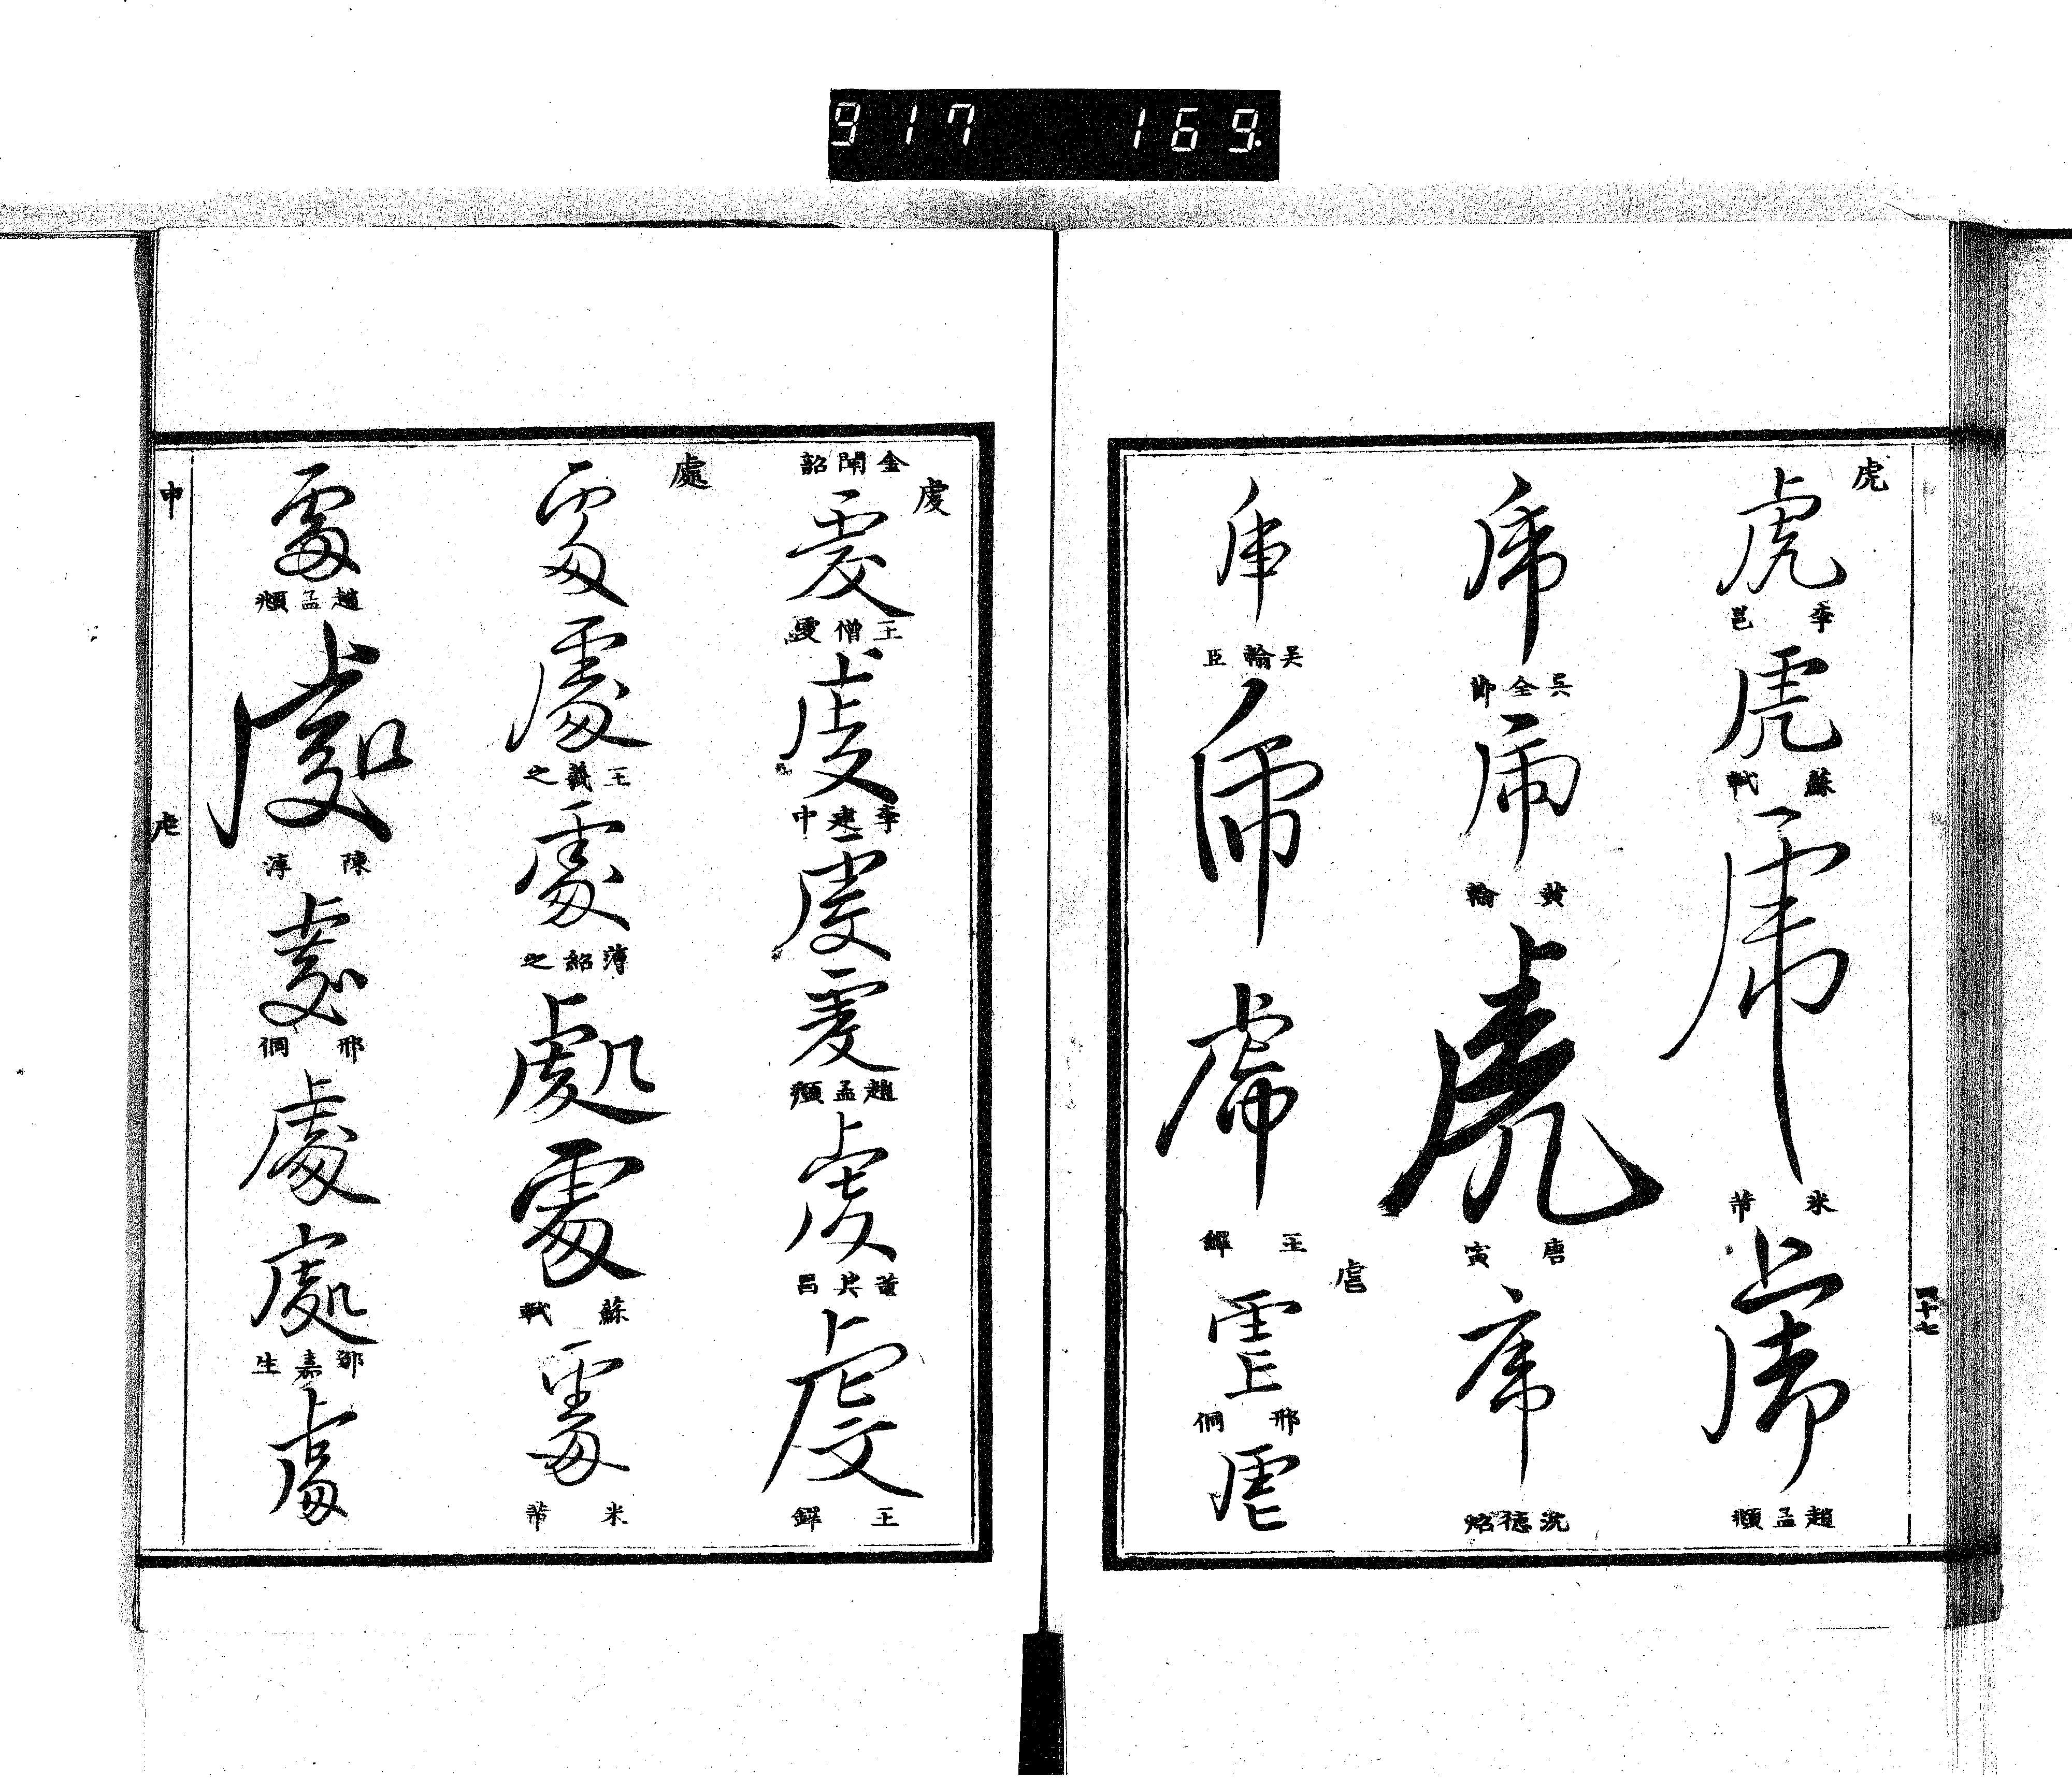 917 169
虎
虎
李邕
虎
蘇軾
虎
米芾
虎
趙孟頫
四十七
虎
吳全節
虎
黃輪
虎
唐寅
虎
沈德
虎
吳輪臣
虎
虎
王鐸
虐
虐
邢侗
虐
金閑韶
虔
虔
王僧虔
虔
李建中
虔
虔
趙孟頫
虔
董其昌
虔
王鐸
處
處
處
王羲之
處
薄紹之
處
處
蘇軾
處
米芾
處
趙孟頫
處
陳淳
處
邢侗
處
處
鄒嘉生
處
申
虍